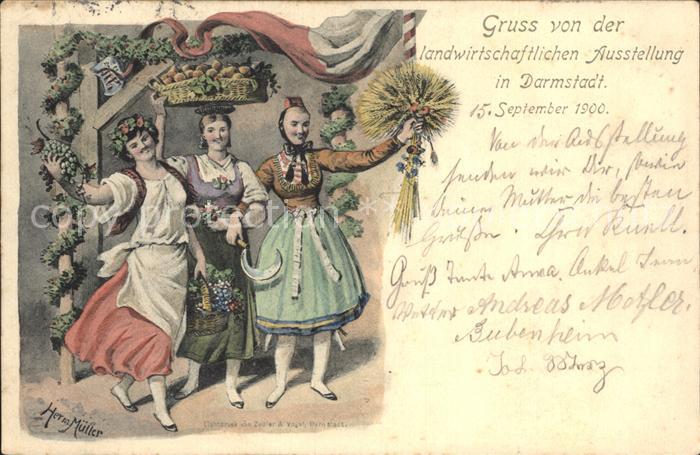 Gruss von der
landwirtschaftlichen Ausstellung
in Darmstadt.
15. September 1900.
Von der Ausstellung
senden wir Dir, sowie
Deiner Mutter die besten
Grüße.
Gruß Tante Anna. Onkel
Vetter Andreas Metzler.
Bubenheim
Joh.
Herm. Müller
Lichtdruck von Zedler & Vogel, Darmstadt.